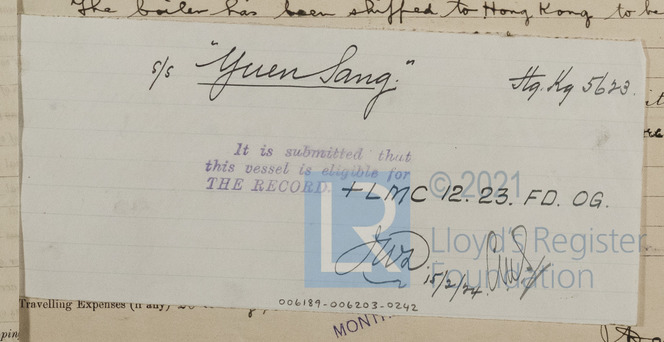 The boiler has been shipped to Hong Kong to be
s/s "Yuen Sang." Hg. Kg 5623.
It is submitted that
this vessel is eligible for
THE RECORD. + LMC 12.23. FD. OG.
© 2021
LR
Lloyd's Register
Foundation
15/2/24
Travelling Expenses (if any)
006189-006203-0242
MONTH